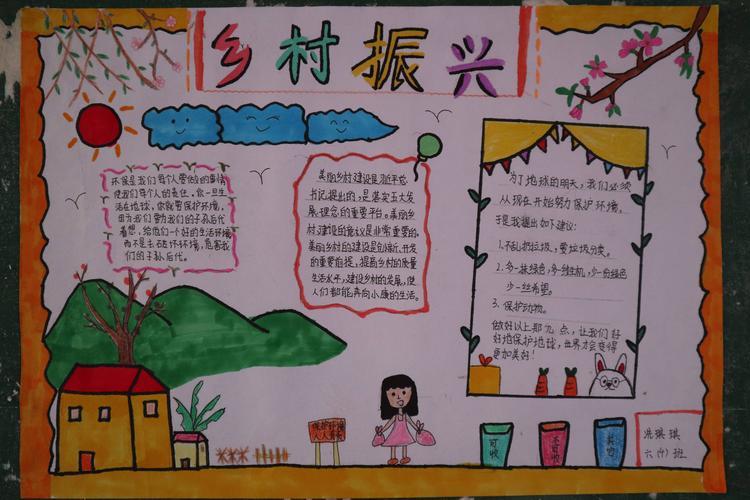 乡村振兴
环保是我们每个人要做的事情
使我们每个人的责任。你一旦生
活在地球,你就要保护环境,
因为我们要为我们的子孙后代
着想,给他们一个好的生活环境
而不是去破坏环境,危害我
们的子孙后代。
美丽乡村建设是习近平总
书记提出的,是落实五大发
展理念的重要平台。美丽乡
村建设的意义是非常重要的。
美丽乡村的建设是创新、开发
的重要前提,提高乡村的质量
生活水平,建设乡村的发展,使
人们都能奔向小康的生活。
为了地球的明天,我们必须
从现在开始努力保护环境,
于是我提出如下建议:
1.不乱扔垃圾,要垃圾分类。
2.多一抹绿色,多一线生机,少一份绿色
少一丝希望。
3.保护动物。
做好以上那几点,让我们好
好地保护地球,世界才会变得
更加美好!
保护环境
人人有责
可收
不可收
其它
洗琪琪
六(1)班